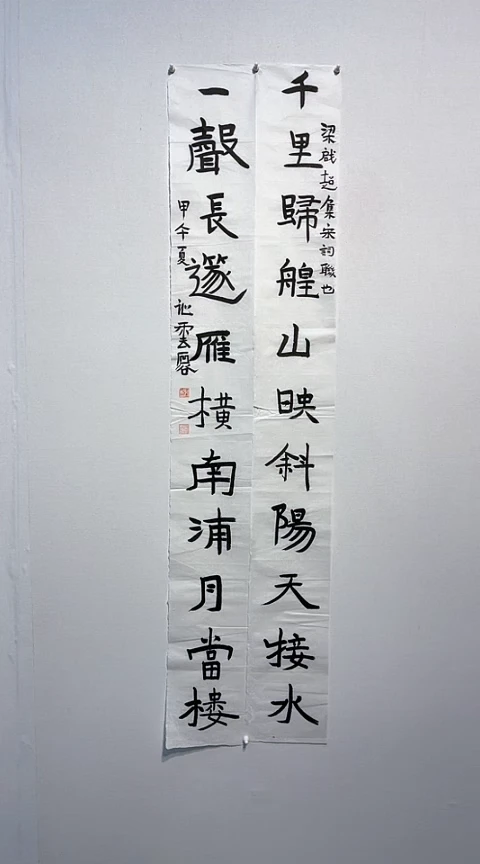 千里歸艎山映斜陽天接水
梁啟超集宋詞聯也
一聲長篴雁橫南浦月當樓
甲午夏 雲